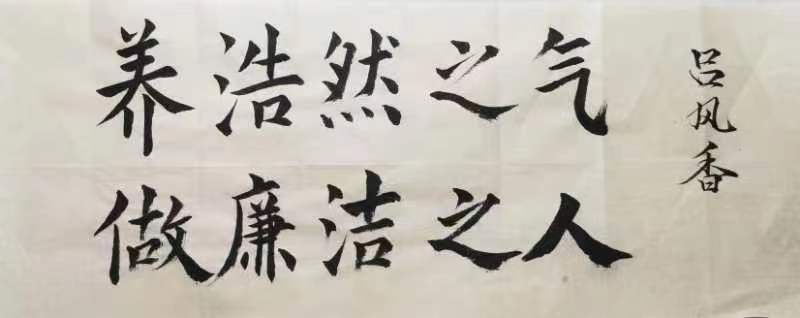 养浩然之气
做廉洁之人
吕风香